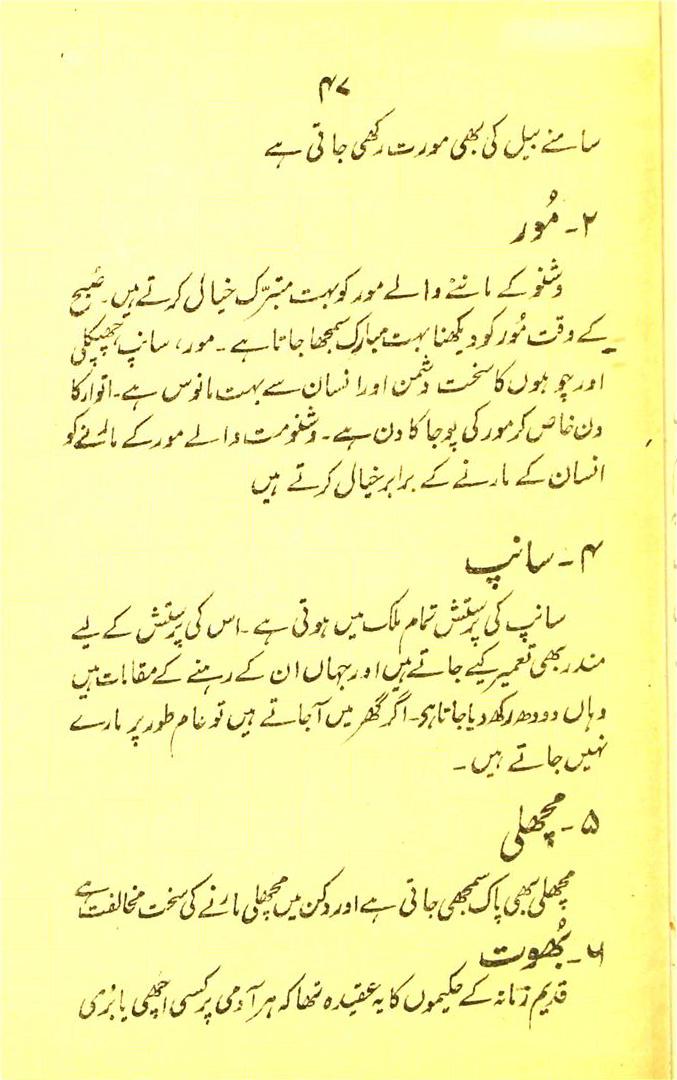 ۴۷
سامنے بیل کی بھی مورت رکھی جاتی ہے
۲۔ مُور
وشنو کے ماننے والے مور کو بہت متبرّک خیال کرتے ہیں۔ صُبح
کے وقت مُور کو دیکھنا بہت مبارک سمجھا جاتا ہے۔ مور، سانپ چھپکلی
اور چوہوں کا سخت دشمن اور انسان سے بہت مانوس ہے۔ اتوار کا
دن خاص کر مور کی پوجا کا دن ہے۔ وشنومت والے مور کے مارنے کو
انسان کے مارنے کے برابر خیال کرتے ہیں
۴۔ سانپ
سانپ کی پرستش تمام ملک میں ہوتی ہے۔ اس کی پرستش کے لیے
مندر بھی تعمیر کیے جاتے ہیں اور جہاں ان کے رہنے کے مقامات ہیں
وہاں دودھ رکھ دیا جاتا ہے۔ اگر گھر میں آجاتے ہیں تو عام طور پر مارے
نہیں جاتے ہیں۔
۵۔ مچھلی
مچھلی بھی پاک سمجھی جاتی ہے اور دکن میں مچھلی مارنے کی سخت مخالفت ہے
۶۔ بُھوت
قدیم زمانہ کے حکیموں کا یہ عقیدہ تھا کہ ہر آدمی پر کسی اچھی یا بُری